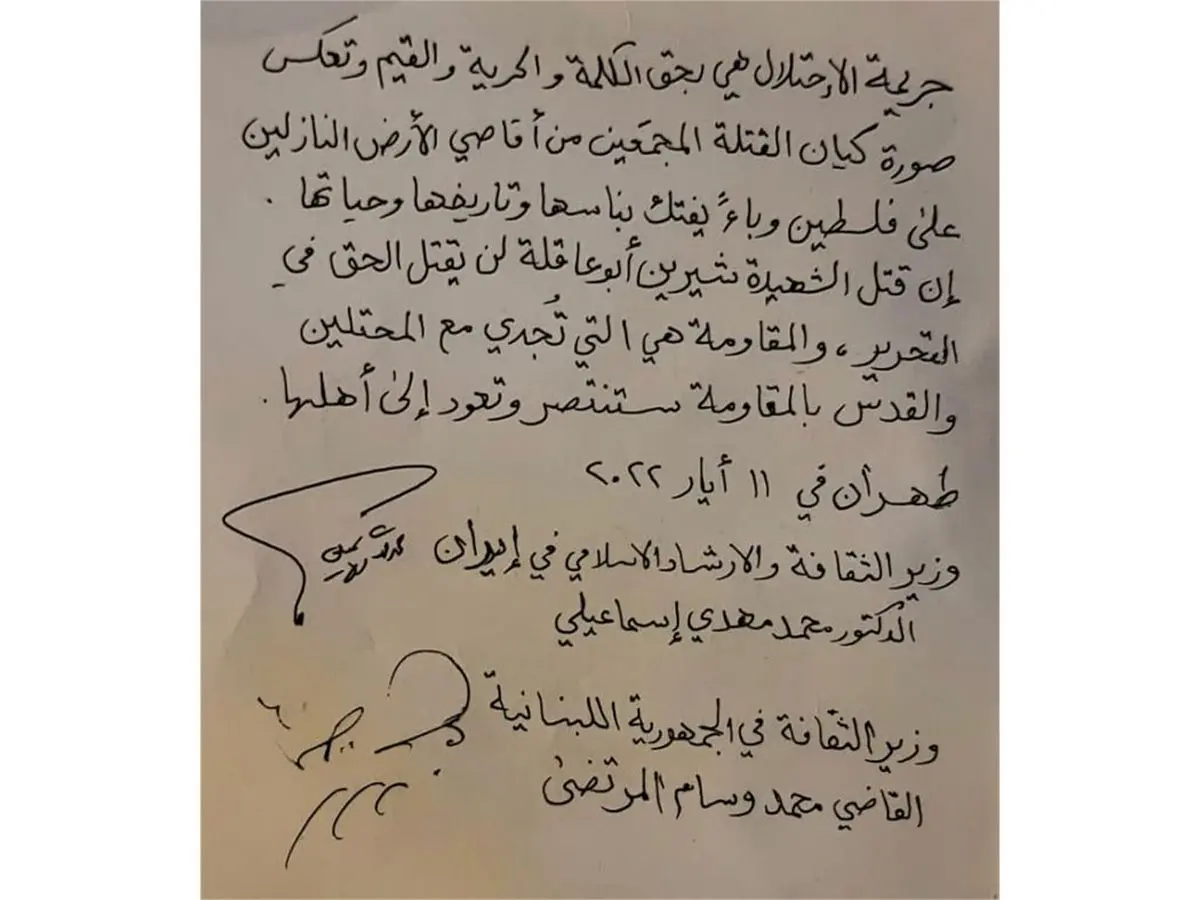 جريمة الإحتلال هي بحق الكلمة والحرية والقيم وتعكس
صورة كيان القتلة المجمَعين من أقاصي الأرض النازلين
على فلسطين وباءً يفتك بناسها وتاريخها وحياتها .
إن قتل الشهيدة شيرين أبوعاقلة لن يقتل الحق في
التحرير ، والمقاومة هي التي تُجدي مع المحتلين
والقدس بالمقاومة ستنتصر وتعود إلى أهلها .
طهران في ١١ أيار ٢٠٢٢
وزير الثقافة والارشاد الاسلامي في إيران
الدكتور محمد مهدي إسماعيلي
وزير الثقافة في الجمهورية اللبنانية
القاضي محمد وسام المرتضى